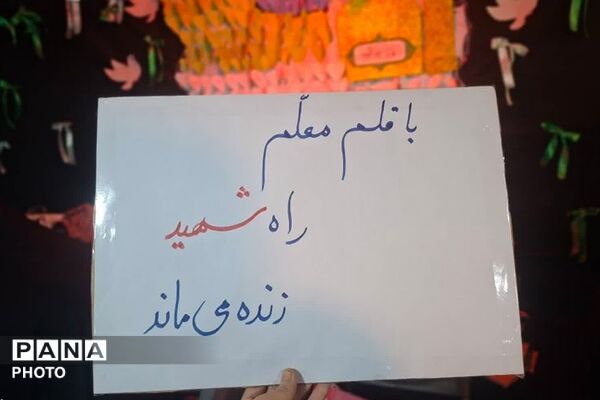 با قلم معلّم
راه شهید
زنده می ماند
PANA
PHOTO